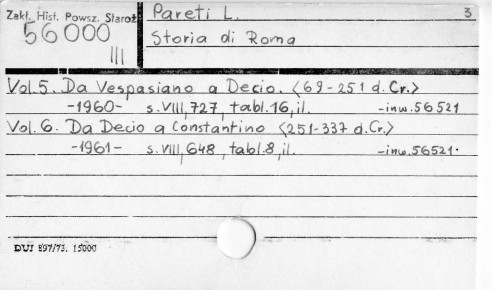 Zakł. Hist. Powsz. Staroż
56000
III
Pareti L. 3
Storia di Roma
Vol.5. Da Vespasiano a Decio. <69-251 d.Cr.>
-1960- s.VIII,727, tabl.16,il. -inw.56521
Vol.6. Da Decio a Constantino <251-337 d.Cr.>
-1961- s.VIII,648, tabl.8,il. -inw.56521.
DUJ 897/73. 15000